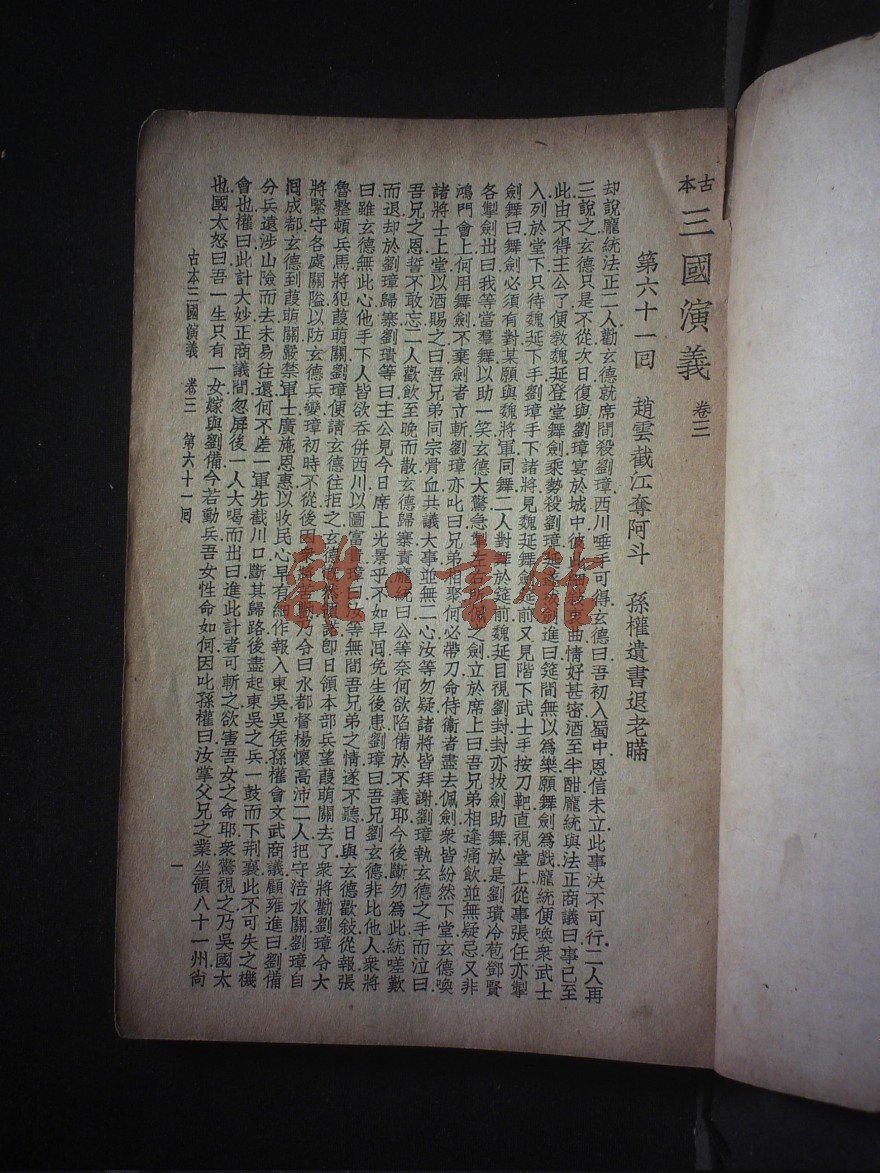 古本三國演義 卷三
第六十一回 趙雲截江奪阿斗 孫權遺書退老瞞
却說龐統法正二人勸玄德就席間殺劉璋西川唾手可得玄德曰吾初入蜀中恩信未立此事決不可行二人再
三說之玄德只是不從次日復與劉璋宴於城中彼此細敍衷曲情好甚密酒至半酣龐統與法正商議曰事已至
此由不得主公了便敎魏延登堂舞劍乘勢殺劉璋延遂拔劍進曰筵間無以爲樂願舞劍爲戲龐統便喚衆武士
入列於堂下只待魏延下手劉璋手下諸將見魏延舞劍筵前又見階下武士手按刀靶直視堂上從事張任亦掣
劍舞曰舞劍必須有對某願與魏將軍同舞二人對舞於筵前魏延目視劉封封亦拔劍助舞於是劉璝冷苞鄧賢
各掣劍出曰我等當羣舞以助一笑玄德大驚急掣左右所佩之劍立於席上曰吾兄弟相逢痛飲並無疑忌又非
鴻門會上何用舞劍不棄劍者立斬劉璋亦叱曰兄弟相聚何必帶刀命侍衞者盡去佩劍衆皆紛然下堂玄德喚
諸將士上堂以酒賜之曰吾兄弟同宗骨血共議大事並無二心汝等勿疑諸將皆拜謝劉璋執玄德之手而泣曰
吾兄之恩誓不敢忘二人歡飲至晚而散玄德歸寨責龐統曰公等奈何欲陷備於不義耶今後斷勿爲此統嗟歎
而退却於劉璋歸寨劉璝等曰主公見今日席上光景乎不如早囘免生後患劉璋曰吾兄劉玄德非比他人衆將
曰雖玄德無此心他手下人皆欲吞併西川以圖富貴璋曰汝等無間吾兄弟之情遂不聽日與玄德歡敍從報張
魯整頓兵馬將犯葭萌關劉璋便請玄德往拒之玄德慨然領諾卽日領本部兵望葭萌關去了衆將勸劉璋令大
將緊守各處關隘以防玄德兵變璋初時不從後因衆人苦勸乃令白水都督楊懷高沛二人把守涪水關劉璋自
囘成都玄德到葭萌關嚴禁軍士廣施恩惠以收民心早有細作報入東吳吳侯孫權會文武商議顧雍進曰劉備
分兵遠涉山險而去未易往還何不差一軍先截川口斷其歸路後盡起東吳之兵一鼓而下荆襄此不可失之機
會也權曰此計大妙正商議間忽屏後一人大喝而出曰進此計者可斬之欲害吾女之命耶衆驚視之乃吳國太
也國太怒曰吾一生只有一女嫁與劉備今若動兵吾女性命如何因叱孫權曰汝掌父兄之業坐領八十一州尙
古本三國演義 卷三 第六十一囘 一
雜·書館